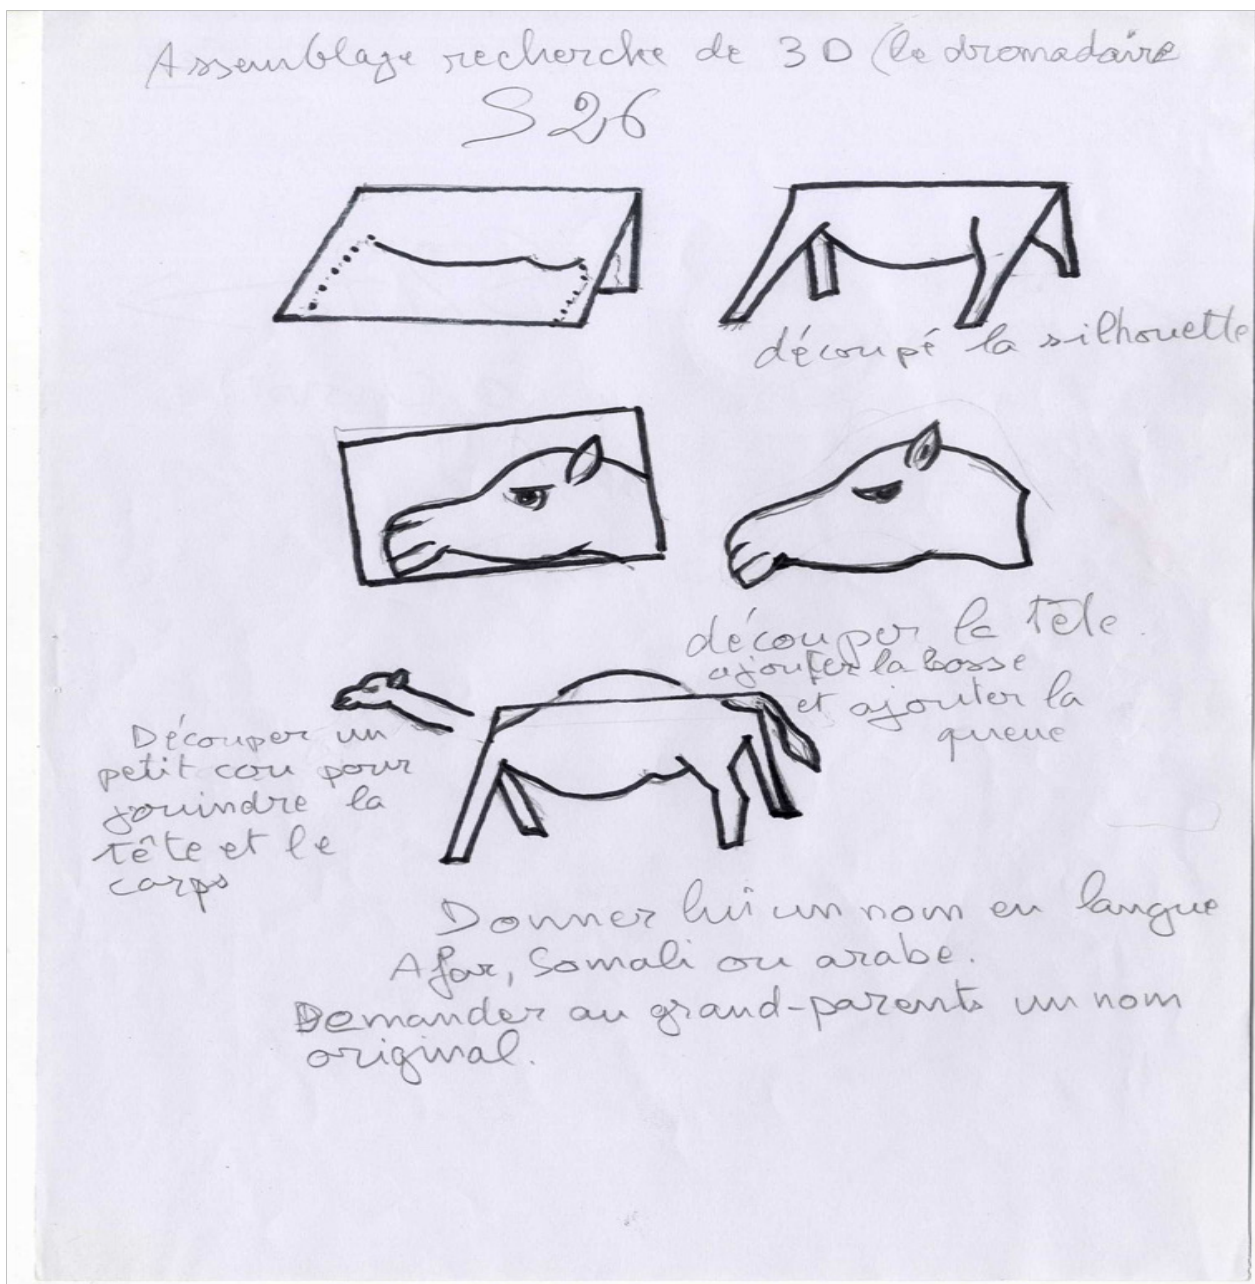 Assemblage recherche de 3D (le dromadaire
S26
découpé la silhouette
découper la tête
ajouter la bosse
et ajouter la
queue
Découper un
petit cou pour
jouindre la
tête et le
corps
Donner lui un nom en langue
Afar, Somali ou arabe.
Demander au grand-parents un nom
original.